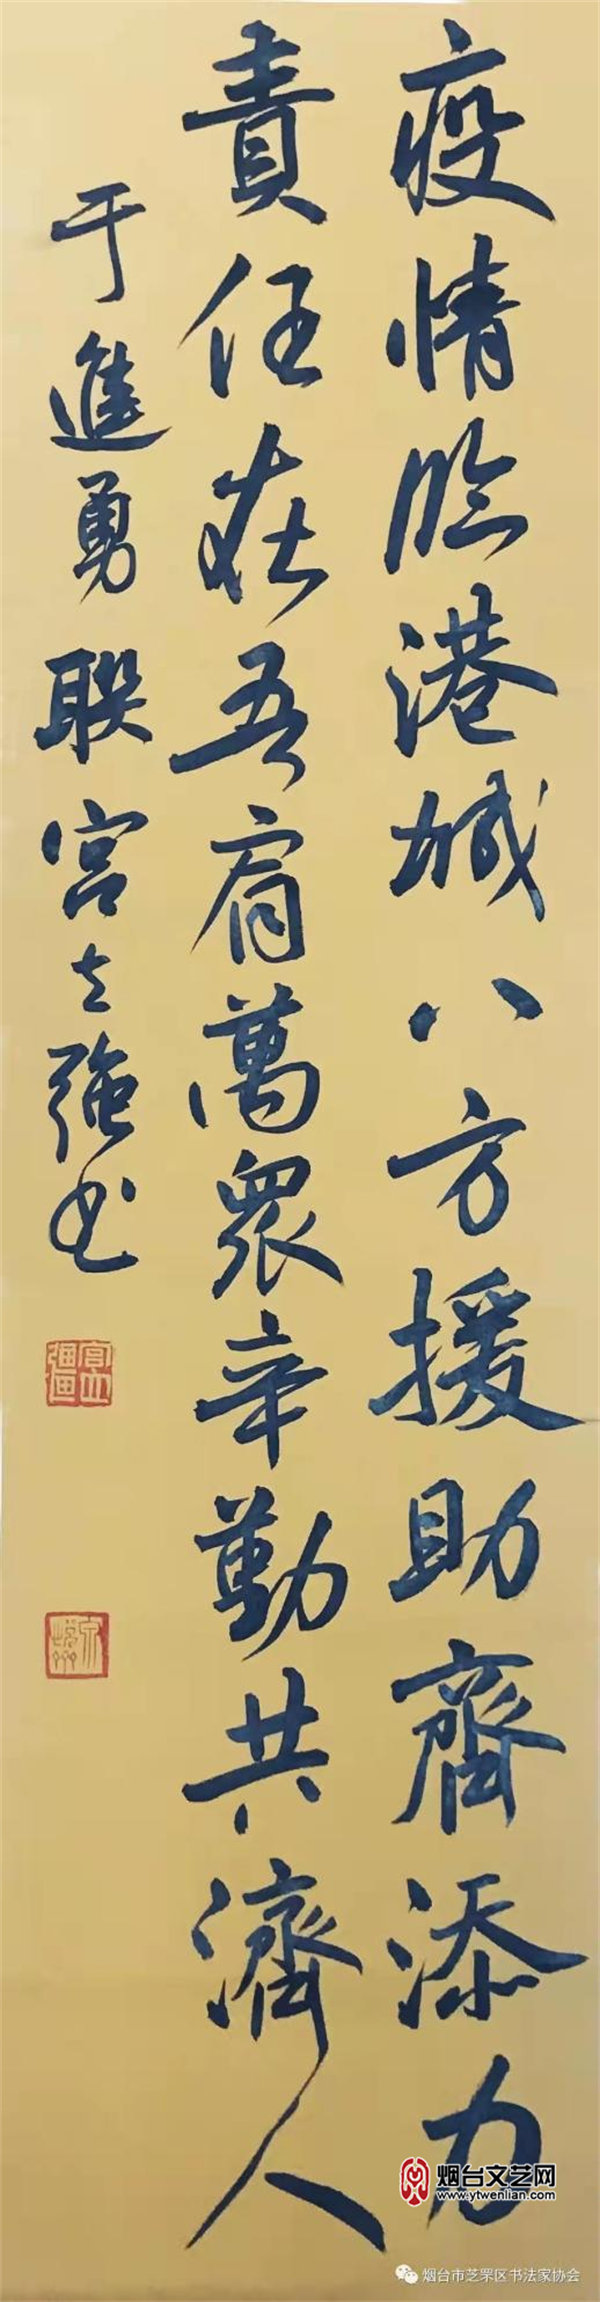 疫情临港城八方援助齊添力
責任在吾肩萬衆辛勤共濟人
于進勇聯宫志強书
烟台文艺网
www.ytwenlian.com
烟台市芝罘区书法家协会